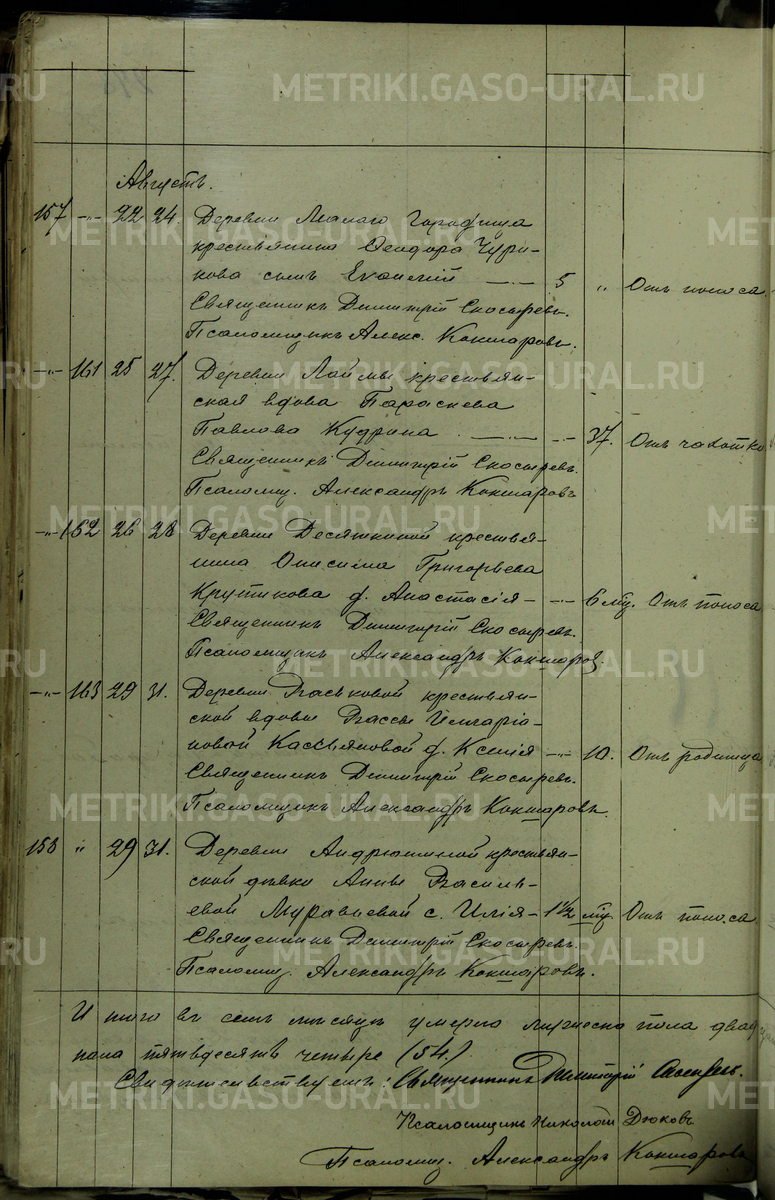 Августъ.
157 -"- 22 24. Деревни Малаго Городища
крестьянина Ѳеодора Чури-
кова сынъ Евгений -"- 5 " Отъ поноса
Священникъ Димитрій Скосыревъ.
Псаломщикъ Алекс. Кокшаровъ.
-"- 161 25 27. Деревни Лаймы крестьян-
ская вдова Параскева
Павлова Кудрина -"- -"- 37. Отъ чахотки
Священникъ Димитрій Скосыревъ.
Псаломщ. Александръ Кокшаровъ
-"- 162 26 28 Деревни Десяткиной крестья-
нина Онисима Григорьева
Крутикова д. Анастасія - -"- 6 мц. Отъ поноса
Священникъ Димитрій Скосыревъ.
Псаломщикъ Александръ Кокшаров
-"- 163 29 31. Деревни крестьян-
ской вдовы Вассы Илларіо-
новой Кассьяновой д. Ксенія -"- 10. Отъ родимца
Священникъ Димитрій Скосыревъ.
Псаломщикъ Александръ Кокшаровъ.
158 " 29 31. Деревни Андрюшиной крестьян-
ской дѣвки Анны Василь-
евой Муравьевой с. Илія - 1 1/2 мц. Отъ поноса
Священникъ Димитрій Скосыревъ.
Псаломщ. Александръ Кокшаровъ.
Итого въ семъ мѣсяцѣ умерло мужеска пола
пола пятьдесятъ четыре (54.)
Свидѣтельствуемъ: Священникъ Димитрій Скосыревъ.
Псаломщикъ Николай Дюковъ
Псаломщ. Александръ Кокшаровъ
METRIKI.GASO-URAL.RU